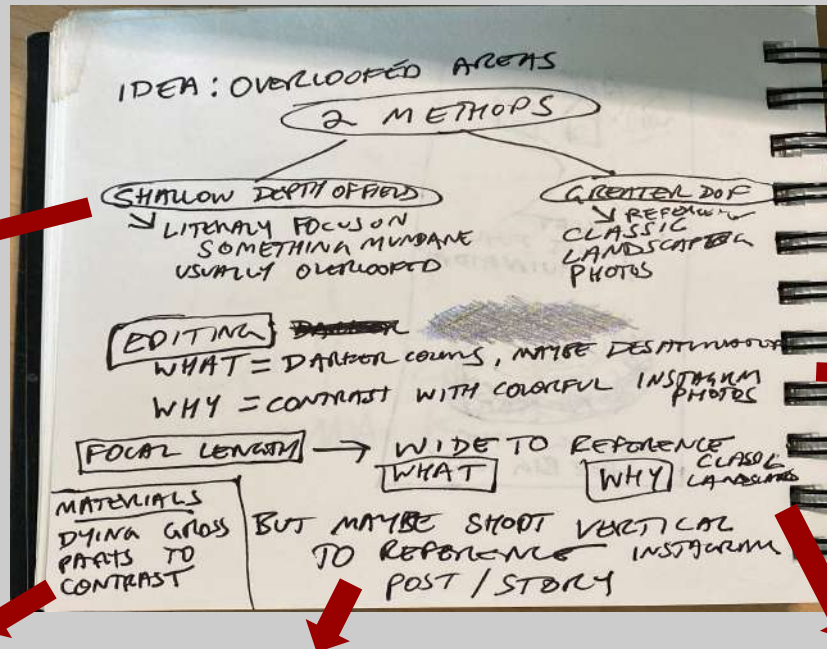 IDEA: OVERLOOKED AREAS
2 METHODS
SHALLOW DEPTH OF FIELD
LITERALY FOCUS ON
SOMETHING MUNDANE
USUALLY OVERLOOKED
GREATER DOF
REFERENCE
CLASSIC
LANDSCAPE
PHOTOS
EDITING
WHAT = DARKER COLORS, MAYBE DESATURATION
WHY = CONTRAST WITH COLORFUL INSTAGRAM
PHOTOS
FOCAL LENGTH → WIDE TO REFERENCE
WHAT WHY CLASSIC
LANDSCAPES
MATERIALS
DYING GRASS
PARTS TO
CONTRAST
BUT MAYBE SHOOT VERTICAL
TO REFERENCE INSTAGRAM
POST / STORY